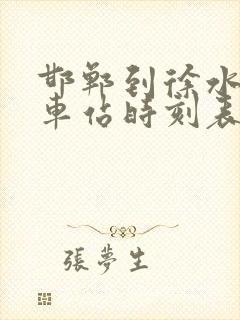 邯郸到徐水
車站時刻表
張夢生